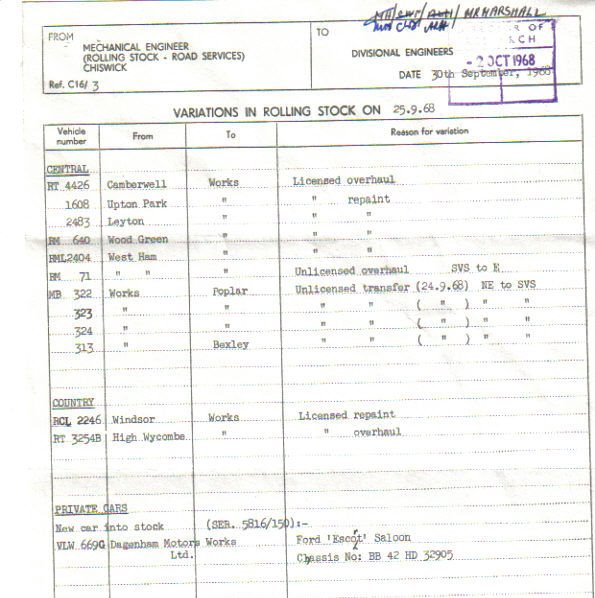 MR MARSHALL
FROM
MECHANICAL ENGINEER
(ROLLING STOCK - ROAD SERVICES)
CHISWICK
Ref. C16/ 3
TO
DIVISIONAL ENGINEERS
DATE 30th September, 1968
R OF
CH
- 2 OCT 1968
VARIATIONS IN ROLLING STOCK ON 25.9.68
Vehicle number From To Reason for variation
CENTRAL
RT 4426 Camberwell Works Licensed overhaul
1608 Upton Park " " repaint
2483 Leyton " " "
RM 640 Wood Green " " "
RML2404 West Ham " " "
RM 71 " " " Unlicensed overhaul SVS to E
MB 322 Works Poplar Unlicensed transfer (24.9.68) NE to SVS
323 " " " " ( " ) " "
324 " " " " ( " ) " "
313 " Bexley " " ( " ) " "
COUNTRY
RCL 2246 Windsor Works Licensed repaint
RT 3254B High Wycombe " " overhaul
PRIVATE CARS
New car into stock (SER. 5816/150):-
VLW 669G Dagenham Motors Works Ford 'Escort' Saloon
Ltd. Chassis No: BB 42 HD 32905